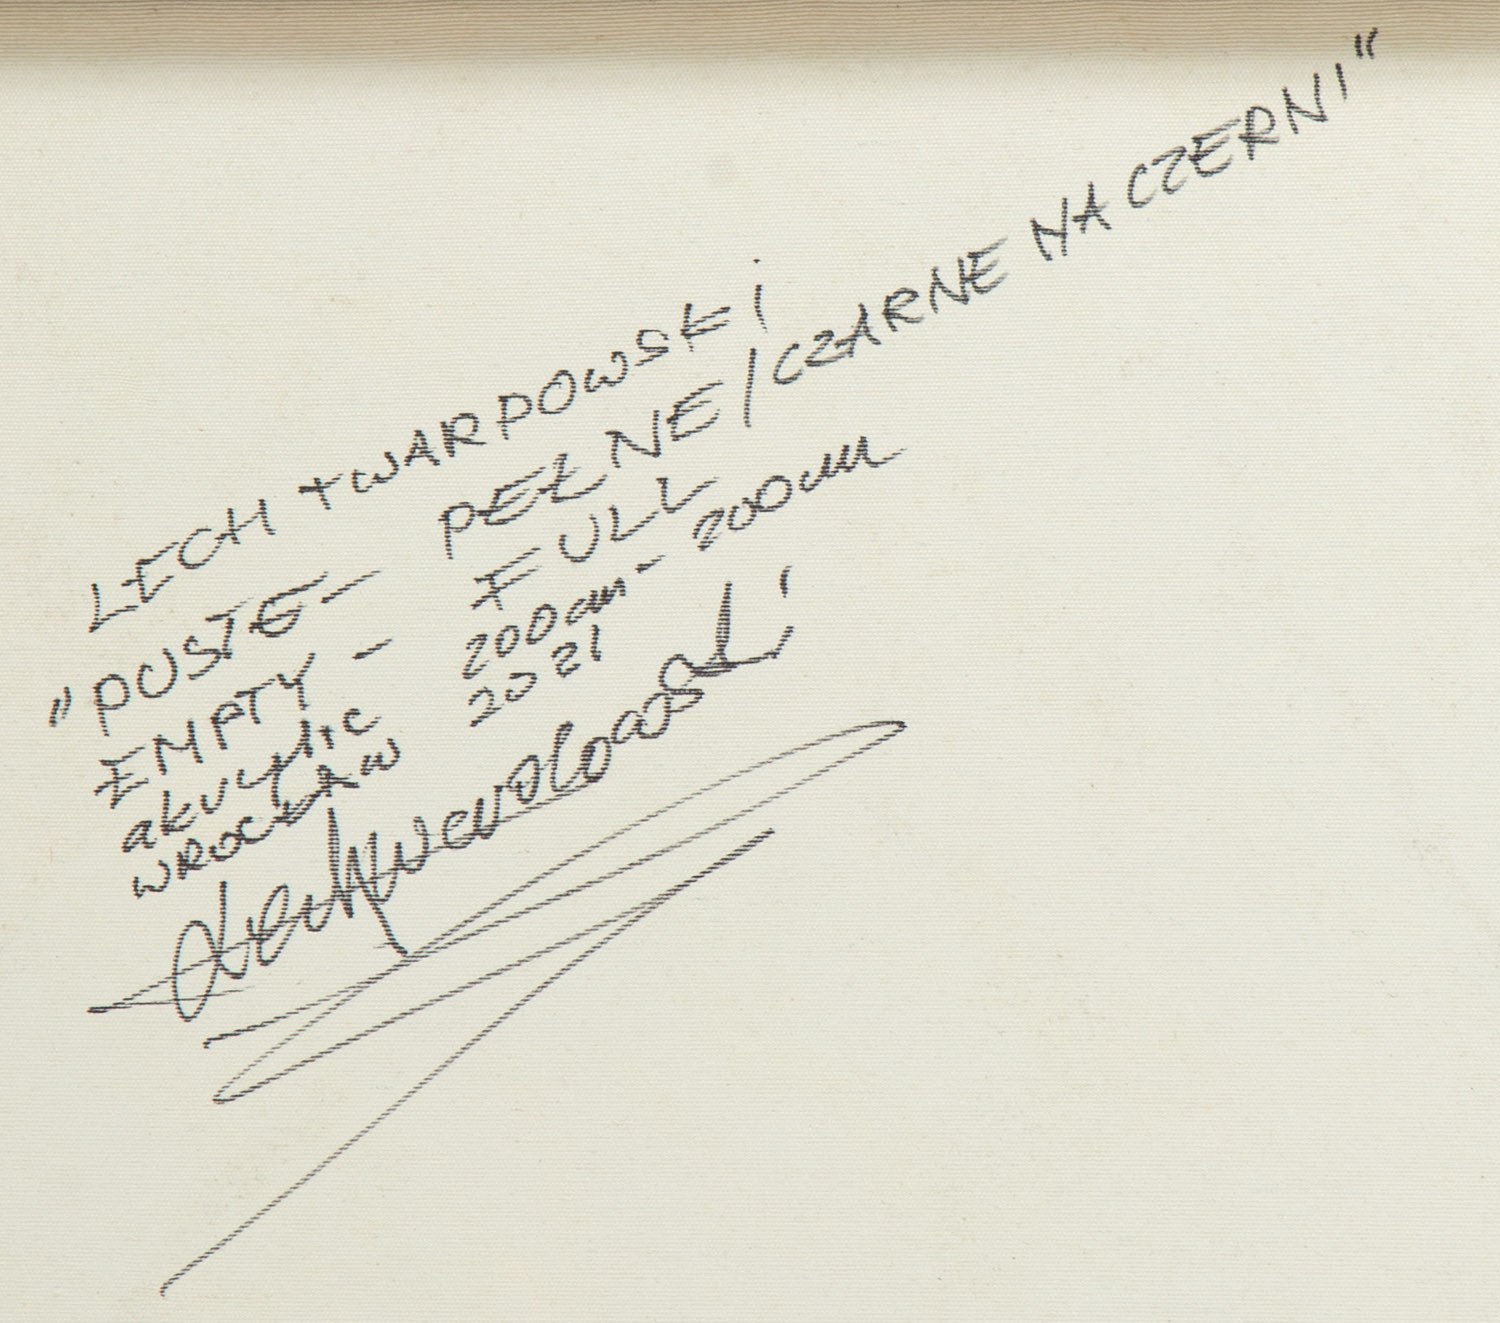 LECH TWARDOWSKI
"PUSTE - PEŁNE / CZARNE NA CZERNI"
EMPTY - FULL
akrylic 200cm - 200cm
WROCŁAW 2021
Lech Twardowski